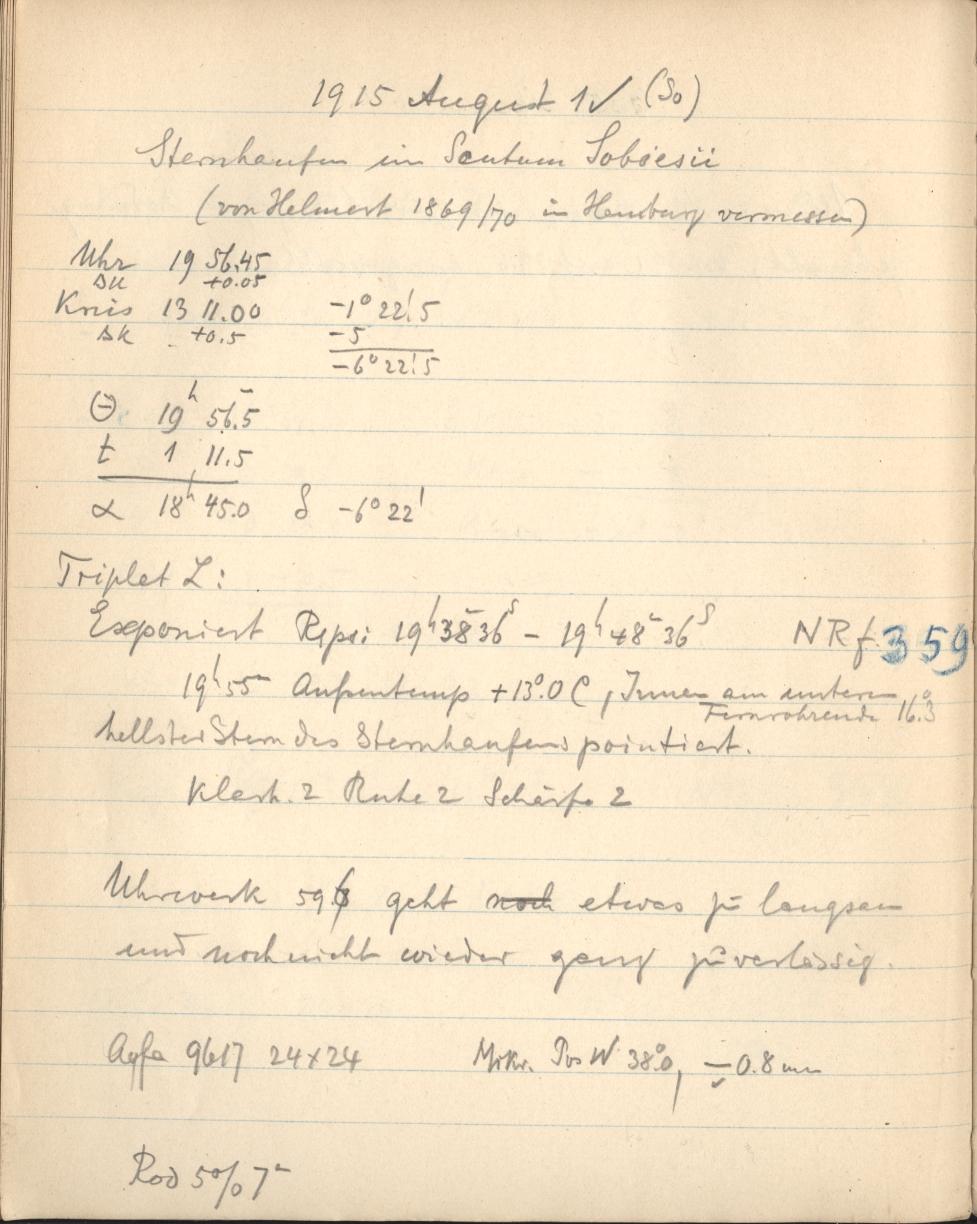 1915 August 1 ✓ (So)
Sternhaufen im Scutum Sobiesii
(von Helmert 1869/70 in Hamburg vermessen)
Uhr 19 56.45
ΔU +0.05
Kreis 13 11.00 -1° 22!5
ΔK +0.5 -5
-6° 22!5
Θ 19h 56.m5
t 1 11.5
α 18h 45.0 δ -6° 22'
Triplet L:
Exponiert Repsi 19h 38m 36s – 19h 48m 36s NRf. 359
19h 55m Außentemp +13°.0 C, Innen am unteren
Fernrohrende 16.°3
hellster Stern des Sternhaufens pointiert.
Klarh. 2 Ruhe 2 Schärfe 2
Uhrwerk 59. geht noch etwas zu langsam
und noch nicht wieder ganz zuverlässig.
Agfa 9617 24×24 Mikr. Pos W 38.°0, 0.8 mm
Rod 5% 7m